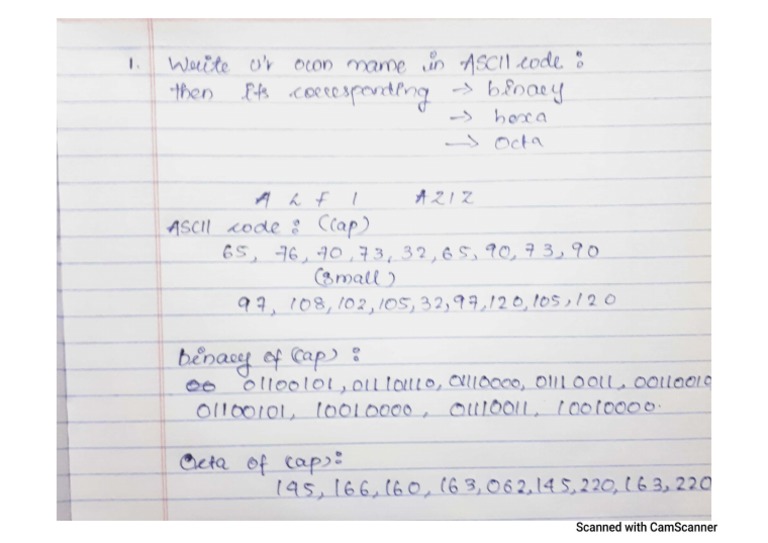 1. Write u'r own name in ASCII code :
then its corresponding → binary
→ hexa
→ octa
A L F I A Z I Z
ASCII code : (cap)
65, 76, 70, 73, 32, 65, 90, 73, 90
(small)
97, 108, 102, 105, 32, 97, 120, 105, 120
binary of (cap) :
01100101, 01110110, 01110000, 01110011, 00110010
01100101, 10010000, 01110011, 10010000.
Octa of cap) :
145, 166, 160, 163, 062, 145, 220, 163, 220
Scanned with CamScanner